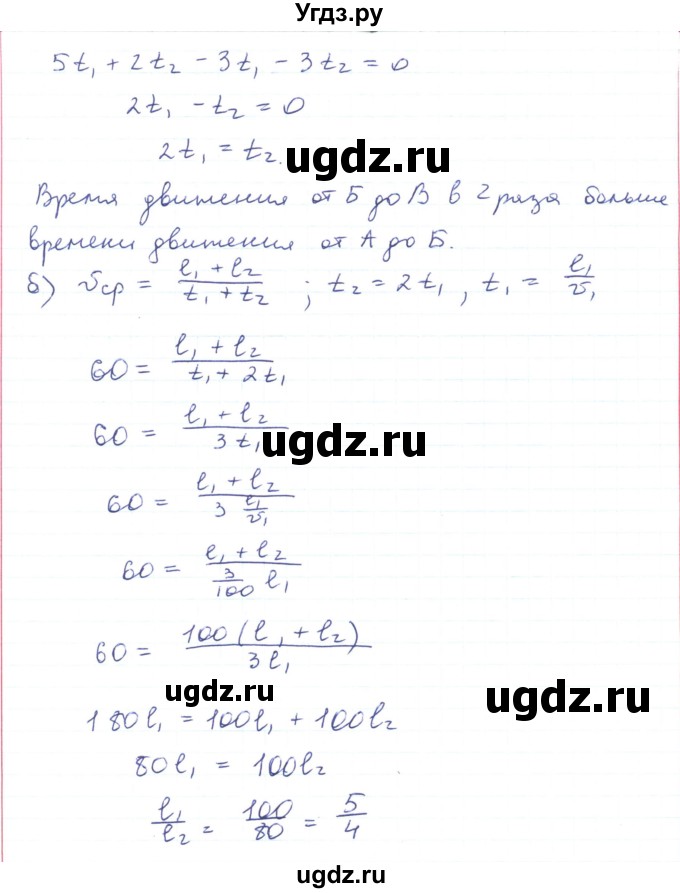 Угдз.ру
5t₁ + 2t₂ − 3t₁ − 3t₂ = 0
2t₁ − t₂ = 0
2t₁ = t₂.
ugdz.ru
ugdz.ru
Время движения от Б до В в 2 раза больше
времени движения от А до Б.
б) υср = (l₁ + l₂)/(t₁ + t₂) ; t₂ = 2t₁, t₁ = l₁/υ₁
60 = (l₁ + l₂)/(t₁ + 2t₁)
60 = (l₁ + l₂)/(3t₁)
ugdz.ru
ugdz.ru
60 = (l₁ + l₂)/(3 l₁/υ₁)
60 = (l₁ + l₂)/(3/100 l₁)
60 = 100(l₁ + l₂)/(3l₁)
ugdz.ru
ugdz.ru
180l₁ = 100l₁ + 100l₂
80l₁ = 100l₂
l₁/l₂ = 100/80 = 5/4
ugdz.ru